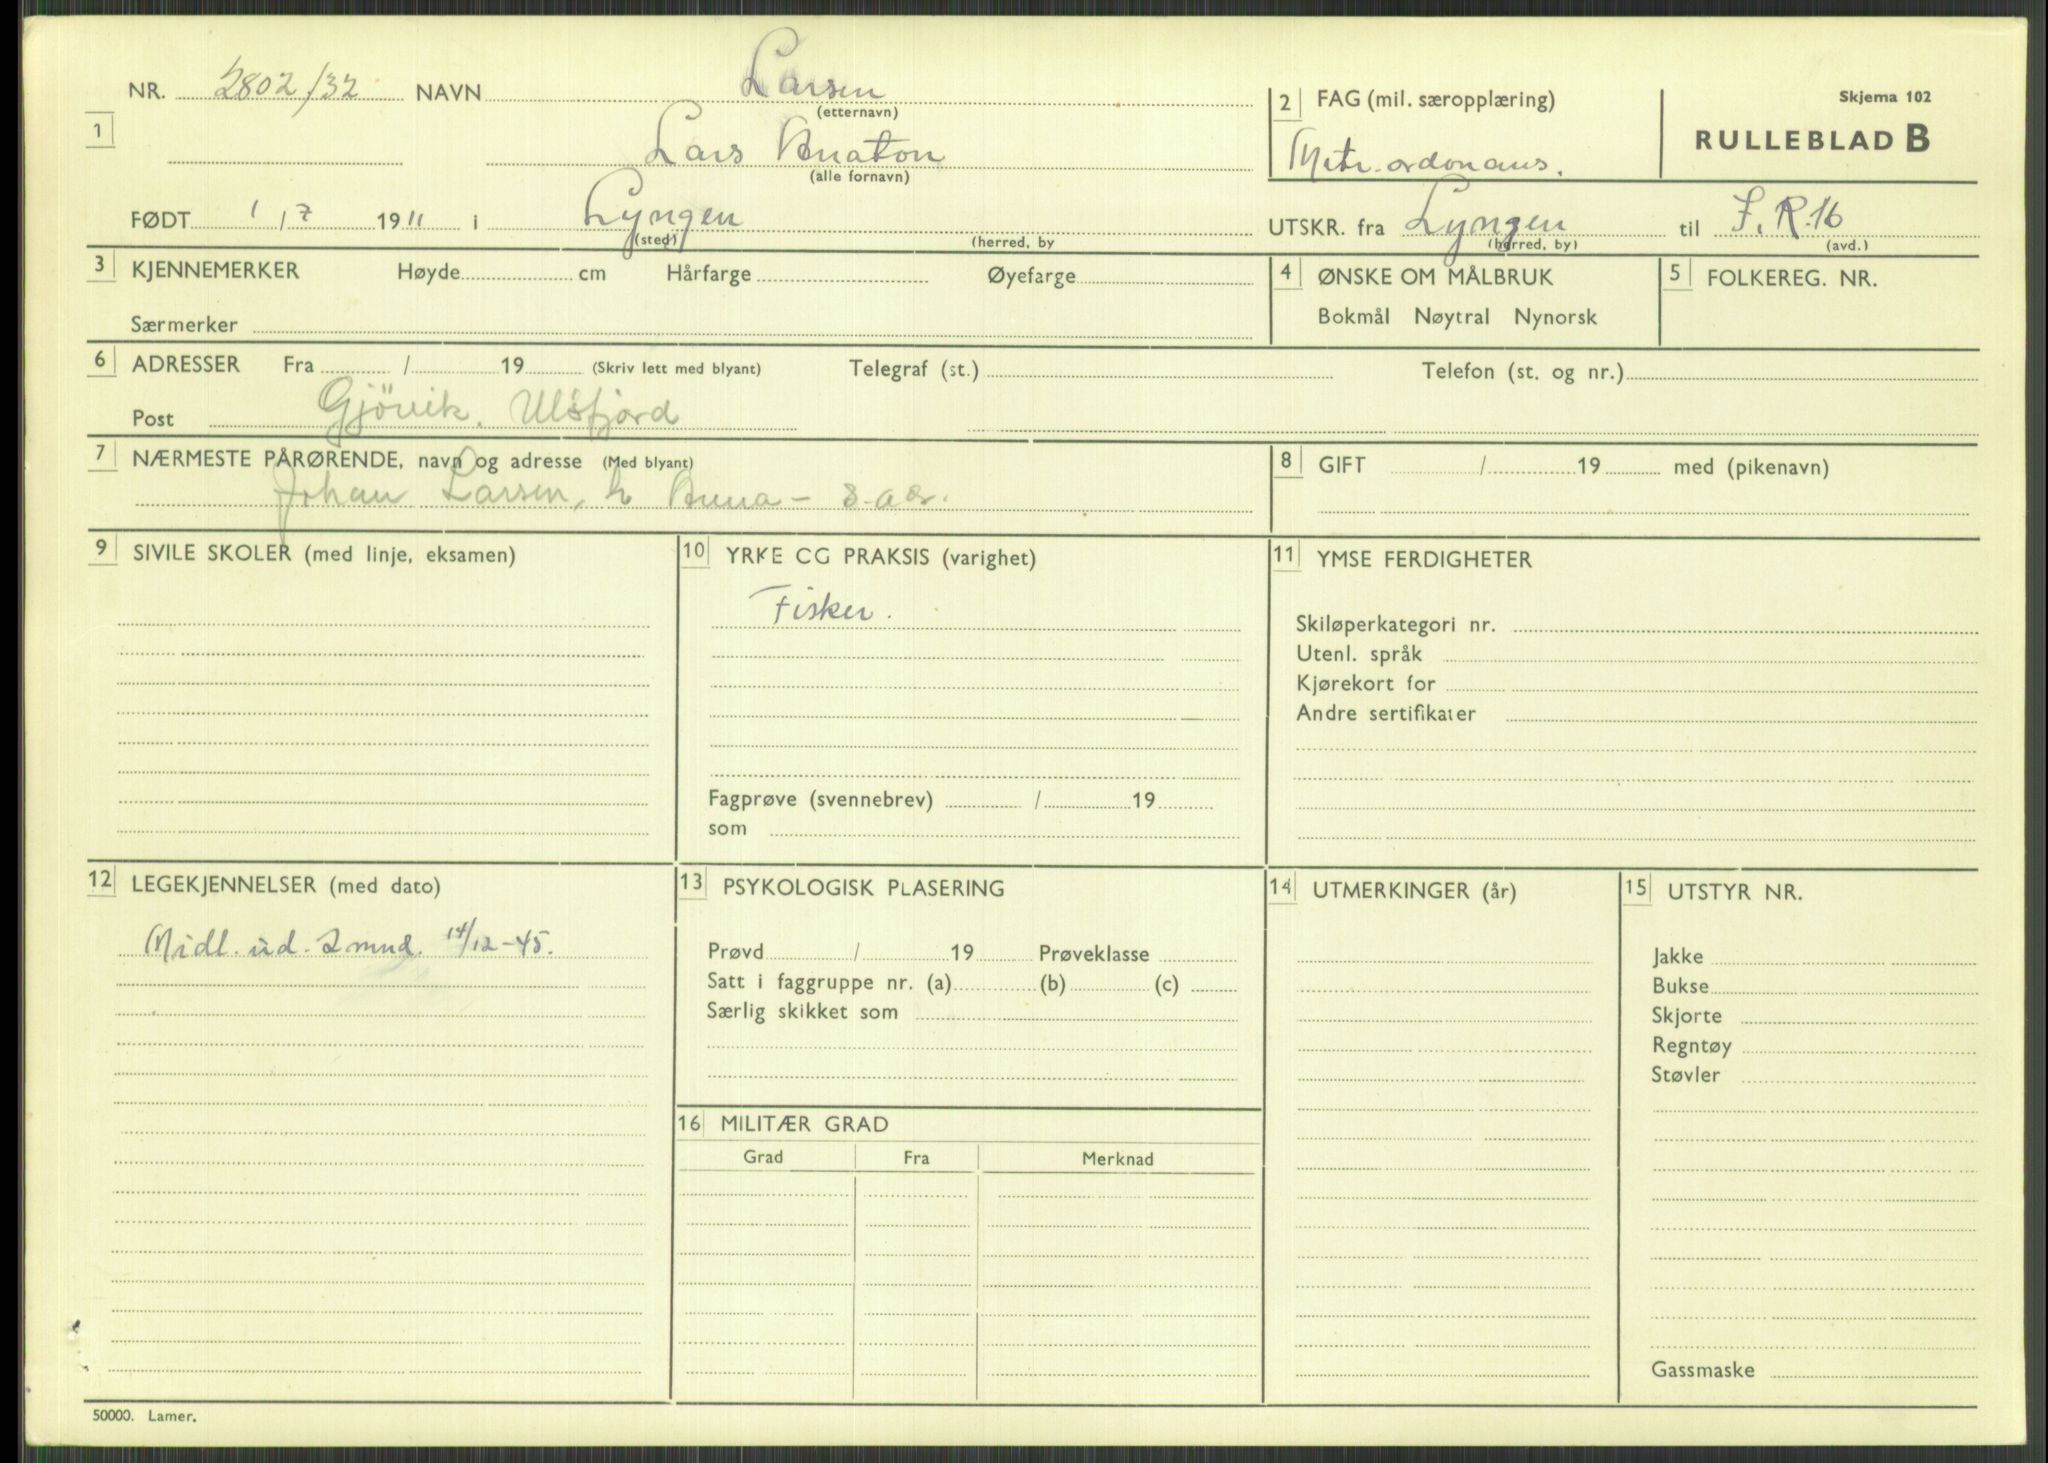 NR. 2802/32 NAVN Larsen
(etternavn)
2 FAG (mil. særopplæring)
Skjema 102
RULLEBLAD B
1
Lars Anaton
(alle fornavn)
Mitr. ordonans.
FØDT 1 / 7 1911 i Lyngen
(sted) (herred, by
UTSKR. fra Lyngen til I.R. 16
(herred, by) (avd.)
3 KJENNEMERKER Høyde cm Hårfarge Øyefarge
Særmerker
4 ØNSKE OM MÅLBRUK
Bokmål Nøytral Nynorsk
5 FOLKEREG. NR.
6 ADRESSER Fra / 19 (Skriv lett med blyant) Telegraf (st.) Telefon (st. og nr.)
Post Gjövik, Ulsfjord
7 NÆRMESTE PÅRØRENDE, navn og adresse (Med blyant)
Johan Larsen, h Anna -
8 GIFT / 19 med (pikenavn)
9 SIVILE SKOLER (med linje, eksamen)
10 YRKE CG PRAKSIS (varighet)
Fisker.
Fagprøve (svennebrev) / 19
som
11 YMSE FERDIGHETER
Skiløperkategori nr.
Utenl. språk
Kjørekort for
Andre sertifikater
12 LEGEKJENNELSER (med dato)
Midl. ud. 2 mnd. 14/12-45.
13 PSYKOLOGISK PLASERING
Prøvd / 19 Prøveklasse
Satt i faggruppe nr. (a) (b) (c)
Særlig skikket som
14 UTMERKINGER (år)
15 UTSTYR NR.
Jakke
Bukse
Skjorte
Regntøy
Støvler
Gassmaske
16 MILITÆR GRAD
Grad Fra Merknad
50000. Lamer.